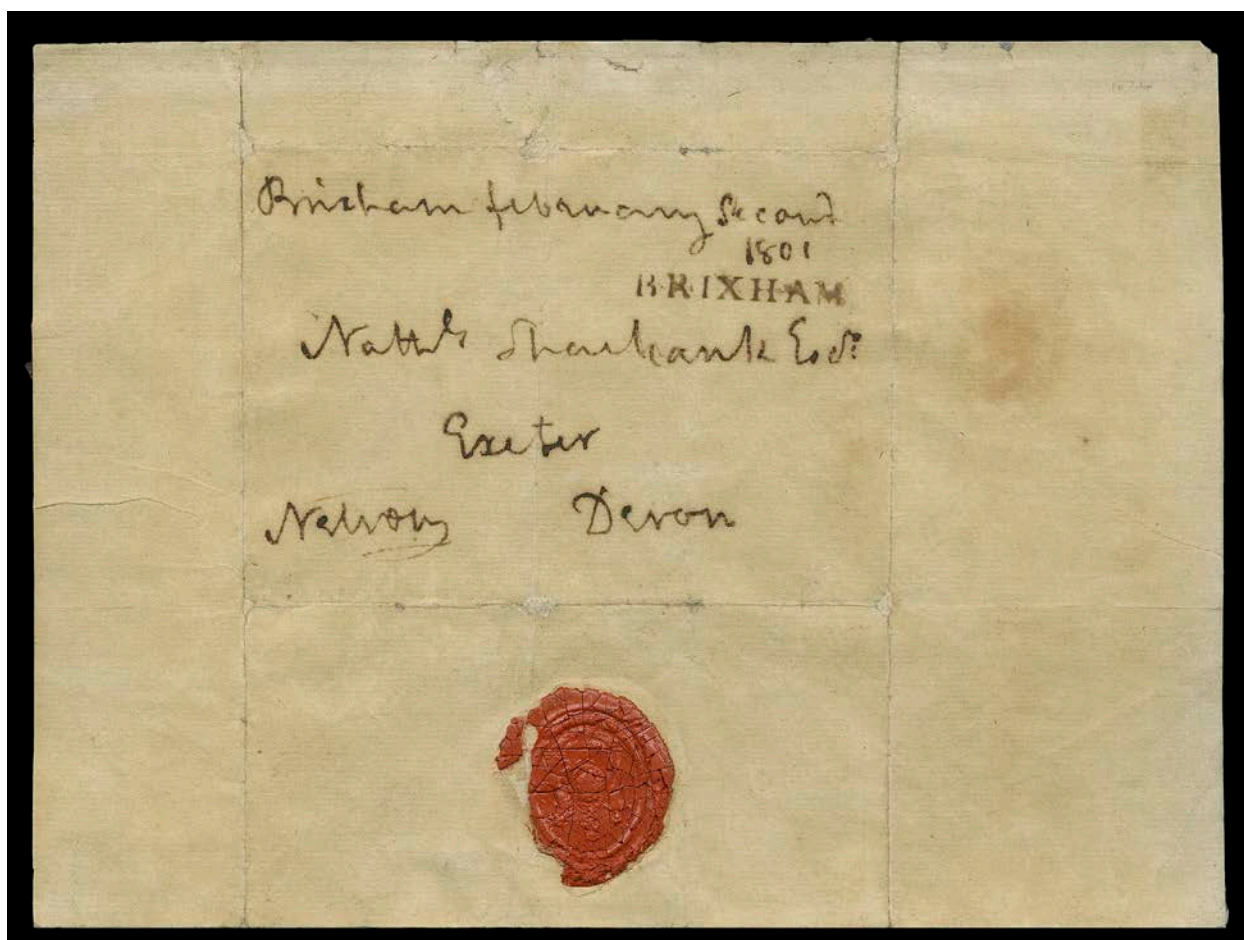 Brixham february Second
1801
BRIXHAM
Natth.l Esqr.
Exeter
Nelson Devon